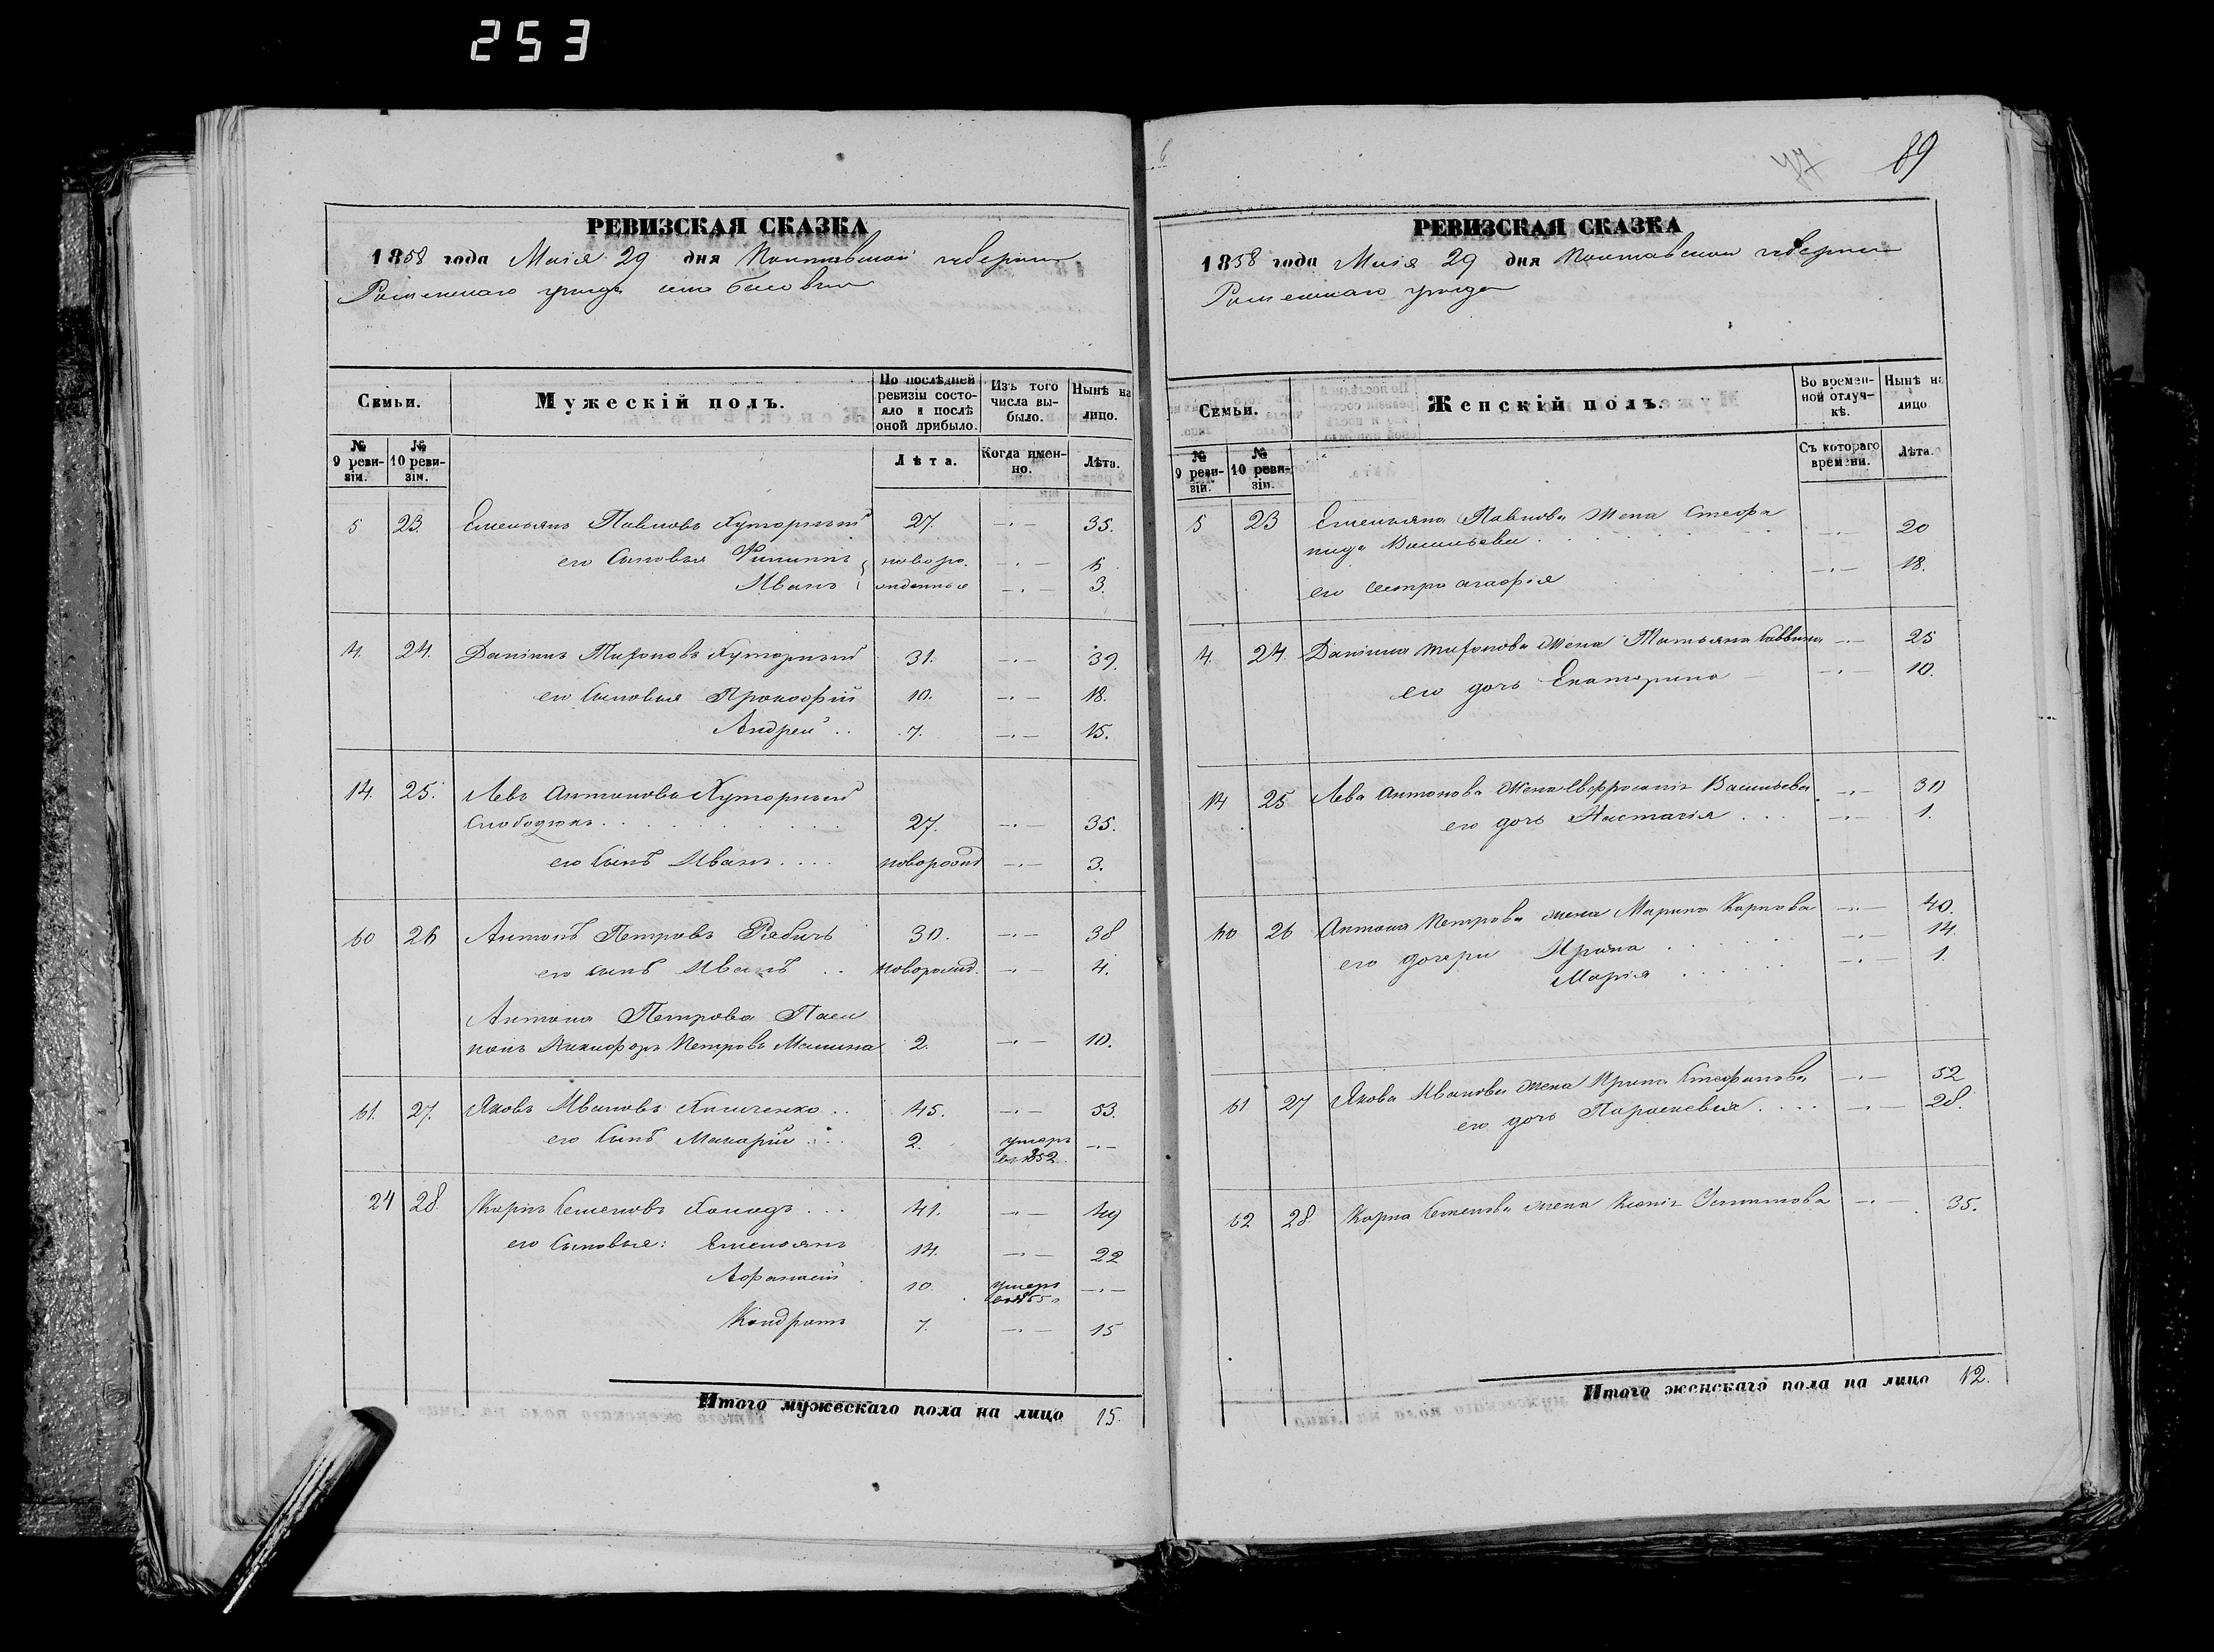 253
РЕВИЗСКАЯ СКАЗКА
1858 года Маія 29 дня Полтавской губерніи
Роменскаго уезда села
Семьи.
Мужескій полъ.
По послѣдней ревизіи состояло и послѣ оной прибыло.
Изъ того числа выбыло.
Нынѣ на лицо.
№ 9 ревизіи.
№ 10 ревизіи.
Лѣта.
Когда именно.
Лѣта.
5 23 Емельянъ Павловъ Хуторный 27. —·— 35.
его сыновья Филиппъ новоро- —·— 5
Иванъ жденные —·— 3.
4. 24. Даніилъ Тифоновъ Хуторный 31. —·— 39.
его сыновья Прокофій 10. —·— 18.
Андрей 7. —·— 15.
14. 25. Левъ Антоновъ Хуторный
Слободюкъ 27. —·— 35.
его сынъ Иванъ новорожд —·— 3.
60 26 Антонъ Петровъ Рябичъ 30. —·— 38
его сынъ Иванъ новорожд. —·— 4.
Антона Петрова Пасы
нокъ Никифоръ Петровъ 2. —·— 10.
61. 27. Яковъ Ивановъ 45. —·— 53.
его сынъ Макарій 2. умеръ въ 1852 —·—
24 28. Карпъ Семеновъ Холодъ 41. —·— 49
его сыновья: Емельянъ 14. —·— 22
Афанасій 10. умеръ —·—
Кондратъ 7. —·— 15
Итого мужескаго пола на лицо 15.
77 89
РЕВИЗСКАЯ СКАЗКА
1858 года Маія 29 дня Полтавской губерніи
Роменскаго уезда
Семьи.
Женскій полъ.
Во временной отлучкѣ.
Нынѣ на лицо
№ 9 ревизіи.
№ 10 ревизіи.
Съ котораго времени.
Лѣта.
5 23 Емельяна Павлова жена Стефа
нида Васильева —·— 20
его сестра Агафія —·— 18.
4. 24. Даніила Тифонова жена Татьяна Саввина —·— 25
его дочь Екатерина —·— 10.
14 25 Льва Антонова жена Евфросинія Васильева —·— 30
его дочь Настасія —·— 1.
60 26 Антона Петрова жена Марина Карпова —·— 40.
его дочери Ирина —·— 14.
Марія —·— 1.
61 27 Якова Иванова жена Ирина Стефанова —·— 52
его дочь Параскевія —·— 28.
62 28. Карпа Семенова жена Ксенія —·— 35.
Итого женскаго пола на лицо 12.